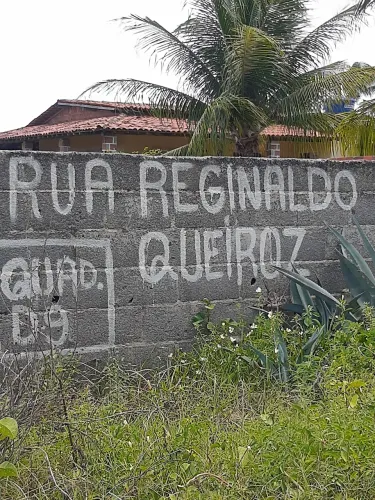 RUA REGINALDO
QUEIROZ
QUAD.
DG